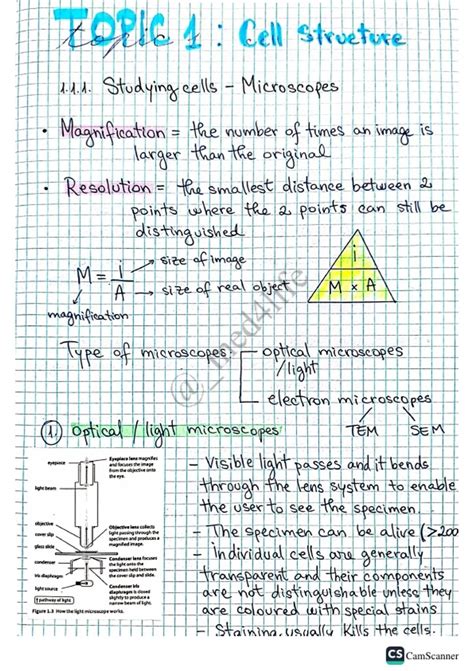 TOPIC 1 : Cell Structure
1.1.1. Studying cells - Microscopes
• Magnification = the number of times an image is
larger than the original
• Resolution = the smallest distance between 2
points where the 2 points can still be
distinguished
M = i/A
→ size of image
→ size of real object
magnification
i
M x A
@_med4life
Type of microscopes
optical microscopes
/light
electron microscopes
TEM SEM
1. Optical / light microscopes
- Visible light passes and it bends
through the lens system to enable
the user to see the specimen.
- The specimen can be alive (>200
- Individual cells are generally
transparent and their components
are not distinguishable unless they
are coloured with special stains
- Staining usually kills the cells.
eyepiece
light beam
objective
cover slip
glass slide
condenser
iris diaphragm
light source
pathway of light
Eyepiece lens magnifies
and focuses the image
from the objective onto
the eye.
Objective lens collects
light passing through the
specimen and produces a
magnified image.
Condenser lens focuses
the light onto the
specimen held between
the cover slip and slide.
Condenser iris
diaphragm is closed
slightly to produce a
narrow beam of light.
Figure 1.3 How the light microscope works.
CS CamScanner